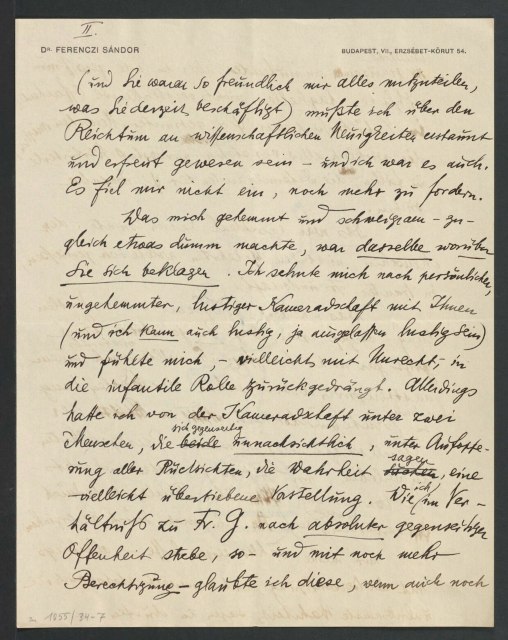 II.
Dr. FERENCZI SÁNDOR
BUDAPEST, VII., ERZSÉBET-KÖRUT 54.
(und Sie waren so freundlich mir alles mitzuteilen,
was Sie derzeit beschäftigt) mußte ich über den
Reichtum an wissenschaftlichen Neuigkeiten erstaunt
und erfreut gewesen sein – und ich war es auch.
Es fiel mir nicht ein, noch mehr zu fordern.
Was mich gehemmt und schweigsam – zu-
gleich etwas dumm machte, war dasselbe worüber
Sie sich beklagen. Ich sehnte mich nach persönlicher,
ungehemmter, lustiger Kameradschaft mit Ihnen
(und ich kann auch lustig, ja ausgelassen lustig sein)
und fühlte mich, – vielleicht mit Unrecht, – in
die infantile Rolle zurückgedrängt. Allerdings
hatte ich von der Kameradschaft unter zwei
sich gegenseitig
Menschen, die beide unnachsichtlich, unter Aufopfe-
sagen
rung aller Rücksichten, die Wahrheit suchen, eine
ich
vielleicht übertriebene Vorstellung. Wie im Ver-
hältniß zu Fr. G. nach absoluter gegenseitiger
Offenheit strebe, so – und mit noch mehr
Berechtigung – glaubte ich diese, wenn auch noch
1055/34-7